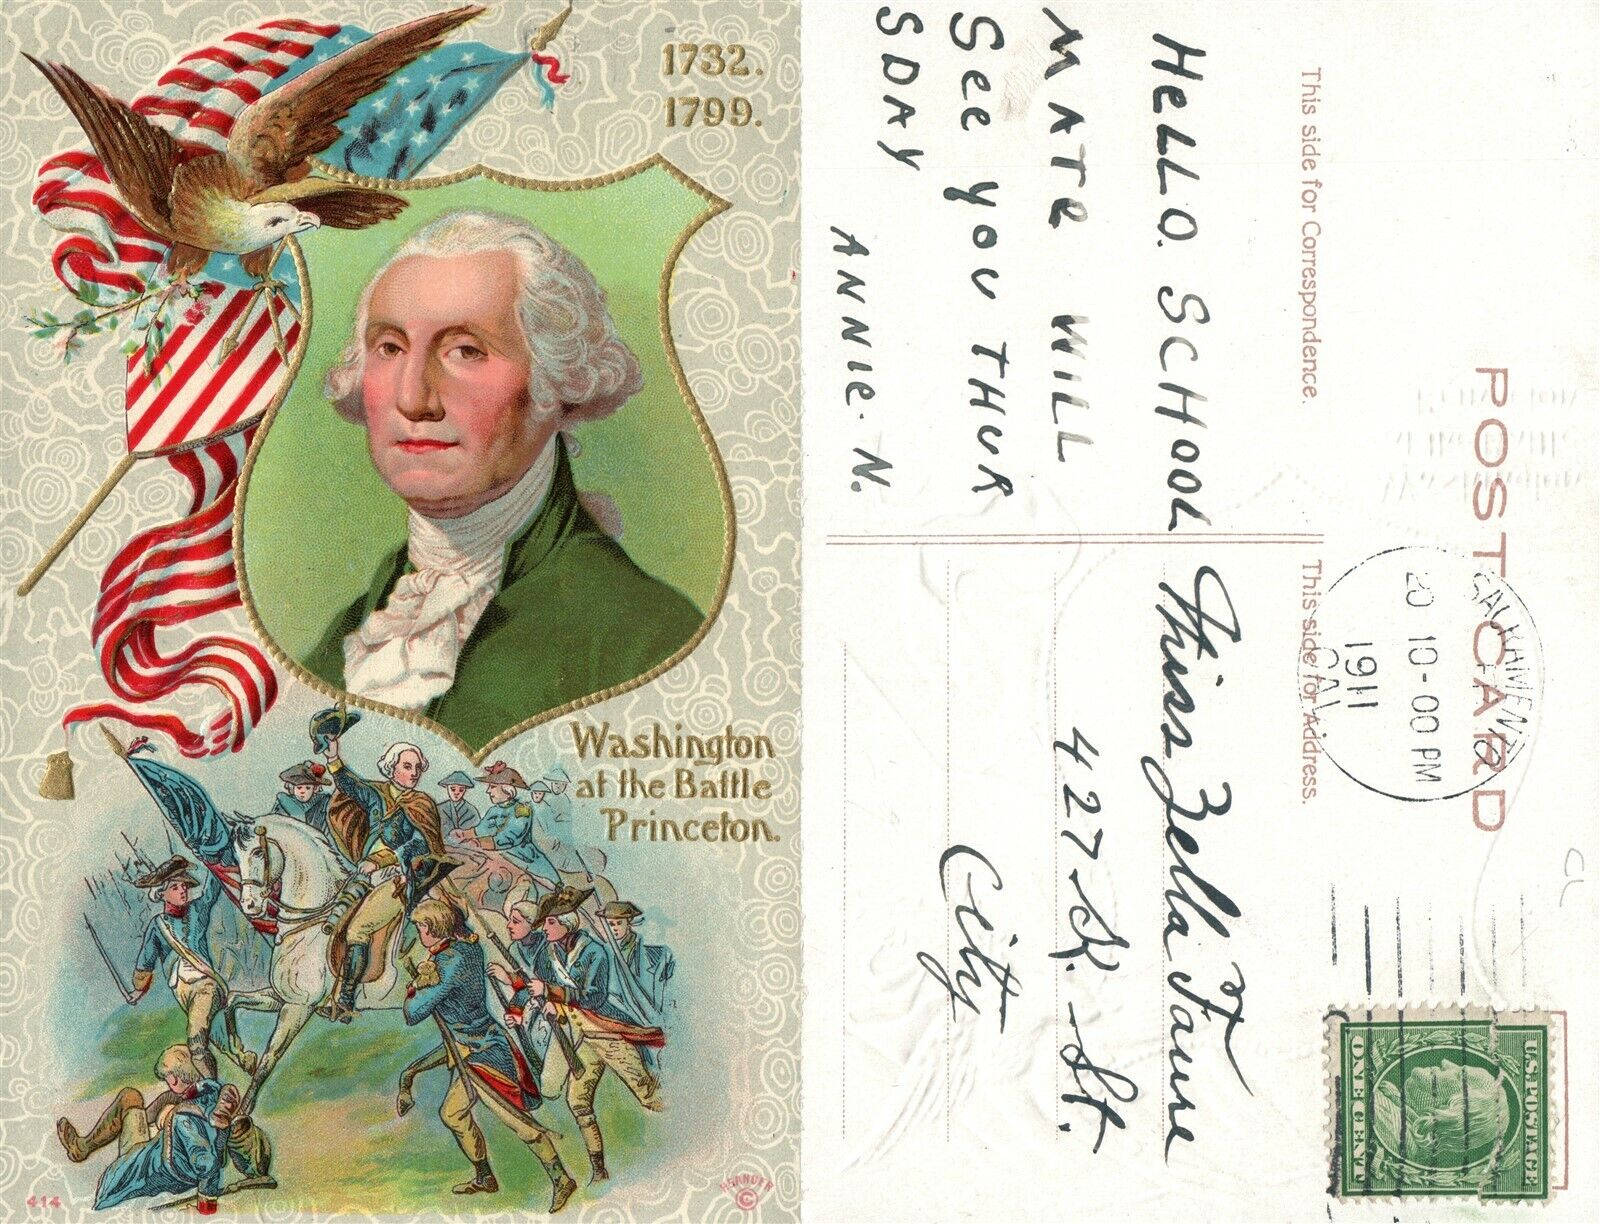 1732.
1799.
Washington
at the Battle
Princeton.
414
©
This side for Correspondence.
POST CARD
This side for Address.
HeLLO. SCHOOL
MATe WILL
See YOU THUR
SDAY
ANNIe. N.
SACRAMENTO
CAL
20
10-00 PM
1911
Miss Zella Faure
427 K. St.
City
CL
U.S. POSTAGE
ONE CENT